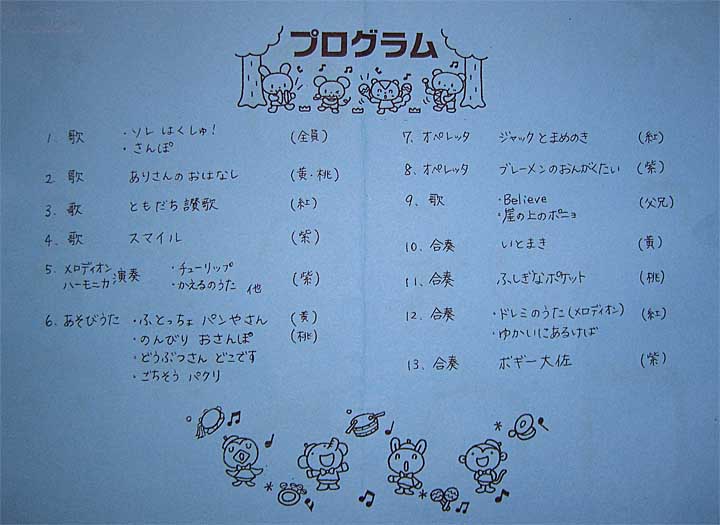 プログラム
1. 歌 ・ソレ はくしゅ! (全員)
・さんぽ
2. 歌 ありさんの おはなし (黄・桃)
3. 歌 ともだち讃歌 (紅)
4. 歌 スマイル (紫)
5. メロディオン ハーモニカ 演奏 ・チューリップ (紫)
・かえるのうた 他
6. あそびうた ・ふとっちょ パンやさん (黄)
・のんびり おさんぽ (桃)
・どうぶつさん どこです
・ごちそう パクリ
7. オペレッタ ジャックとまめのき (紅)
8. オペレッタ ブレーメンのおんがくたい (紫)
9. 歌 ・Believe (父兄)
・崖の上のポニョ
10. 合奏 いとまき (黄)
11. 合奏 ふしぎなポケット (桃)
12. 合奏 ・ドレミのうた(メロディオン) (紅)
・ゆかいにあるけば
13. 合奏 ボギー大佐 (紫)